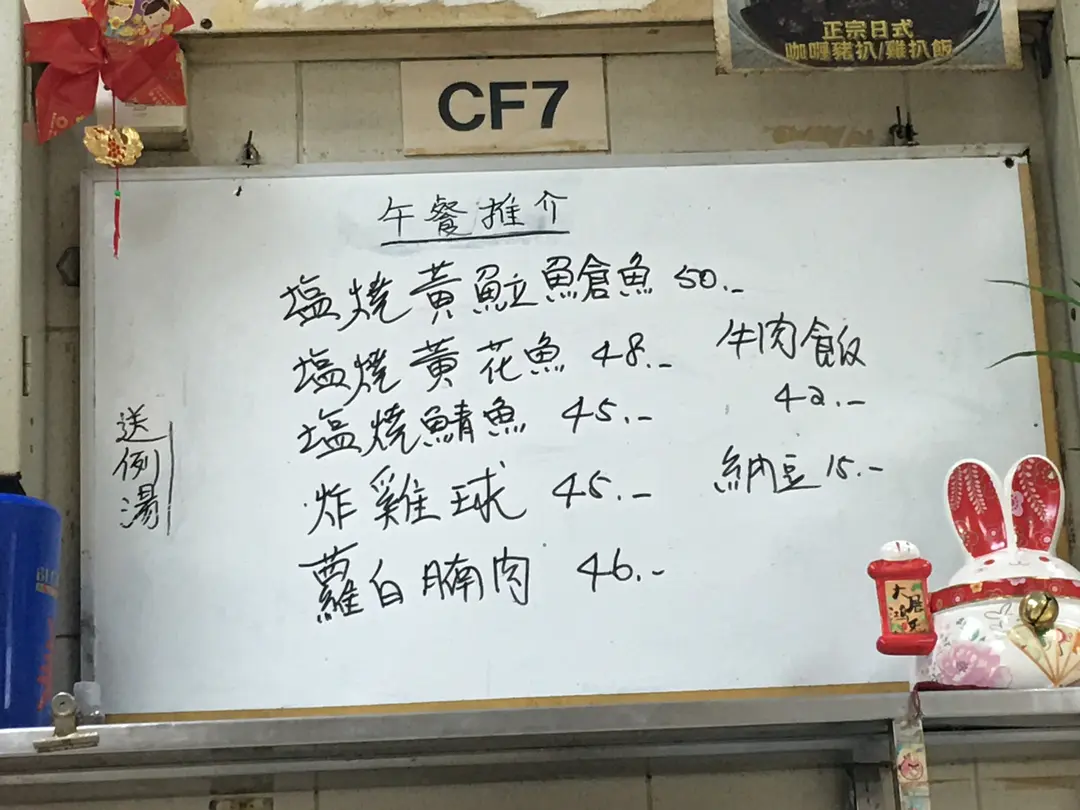 正宗日式
咖喱豬扒/雞扒飯
CF7
午餐推介
塩燒黃魚立魚倉魚 50.-
塩燒黃花魚 48.-
塩燒鯖魚 45.-
炸雞球 45.-
蘿白腩肉 46.-
牛肉飯
42.-
納豆 15.-
送例湯
大展
鴻